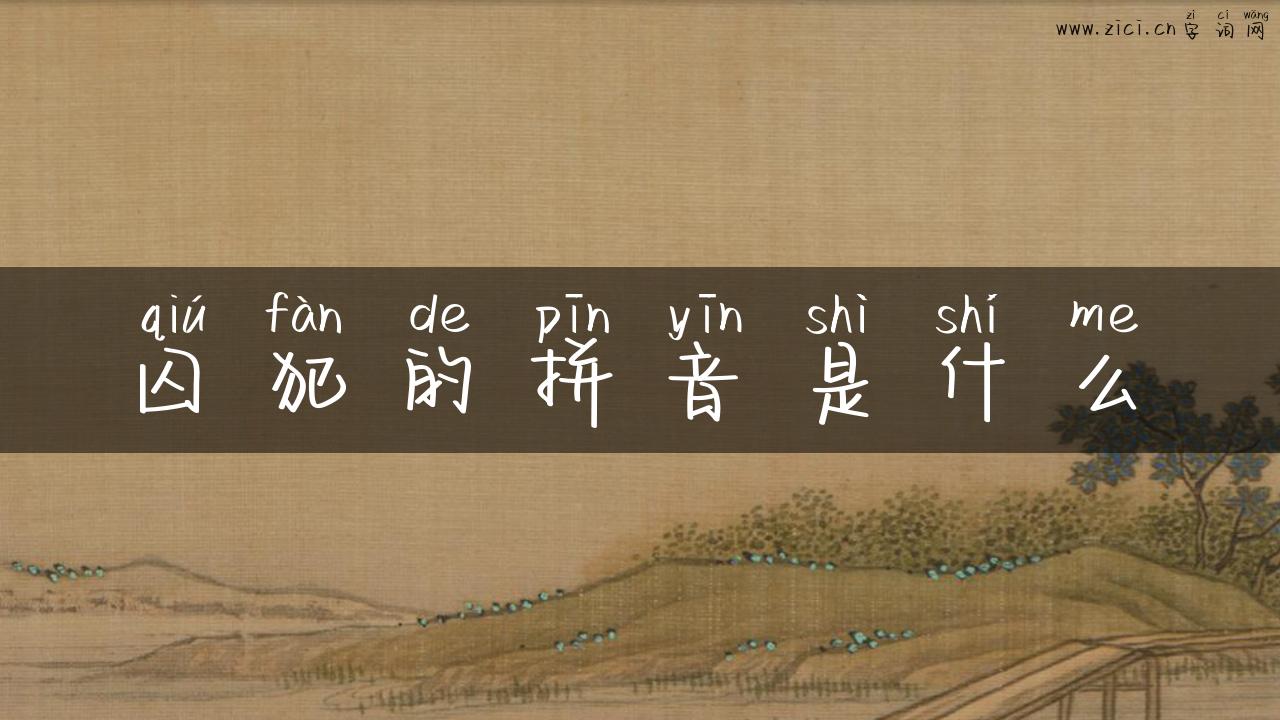 zì cí wǎng
www.zici.cn字词网
qiú fàn de pīn yīn shì shí me
囚犯的拼音是什么